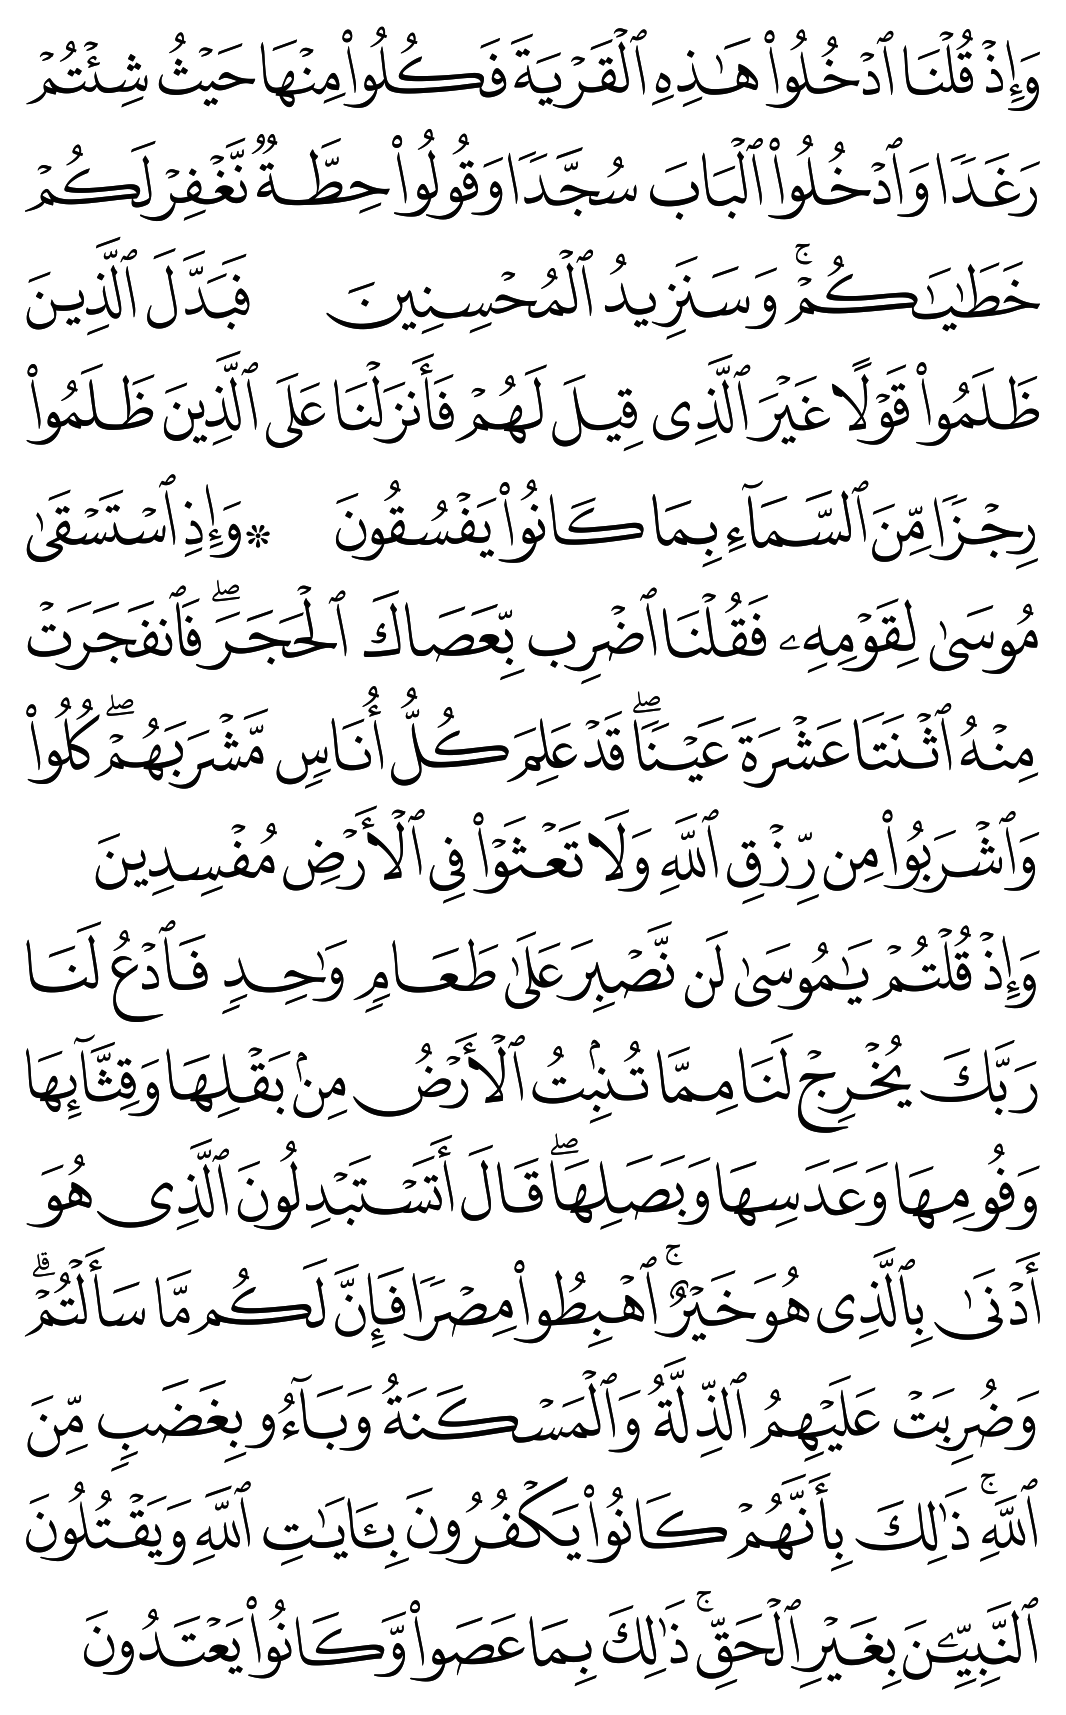 وَإِذۡ قُلۡنَا ٱدۡخُلُواْ هَٰذِهِ ٱلۡقَرۡيَةَ فَكُلُواْ مِنۡهَا حَيۡثُ شِئۡتُمۡ
رَغَدٗا وَٱدۡخُلُواْ ٱلۡبَابَ سُجَّدٗا وَقُولُواْ حِطَّةٞ نَّغۡفِرۡ لَكُمۡ
خَطَٰيَٰكُمۡۚ وَسَنَزِيدُ ٱلۡمُحۡسِنِينَ فَبَدَّلَ ٱلَّذِينَ
ظَلَمُواْ قَوۡلًا غَيۡرَ ٱلَّذِى قِيلَ لَهُمۡ فَأَنزَلۡنَا عَلَى ٱلَّذِينَ ظَلَمُواْ
رِجۡزٗا مِّنَ ٱلسَّمَآءِ بِمَا كَانُواْ يَفۡسُقُونَ ۞وَإِذِ ٱسۡتَسۡقَىٰ
مُوسَىٰ لِقَوۡمِهِۦ فَقُلۡنَا ٱضۡرِب بِّعَصَاكَ ٱلۡحَجَرَۖ فَٱنفَجَرَتۡ
مِنۡهُ ٱثۡنَتَا عَشۡرَةَ عَيۡنٗاۖ قَدۡ عَلِمَ كُلُّ أُنَاسٖ مَّشۡرَبَهُمۡۖ كُلُواْ
وَٱشۡرَبُواْ مِن رِّزۡقِ ٱللَّهِ وَلَا تَعۡثَوۡاْ فِى ٱلۡأَرۡضِ مُفۡسِدِينَ
وَإِذۡ قُلۡتُمۡ يَٰمُوسَىٰ لَن نَّصۡبِرَ عَلَىٰ طَعَامٖ وَٰحِدٖ فَٱدۡعُ لَنَا
رَبَّكَ يُخۡرِجۡ لَنَا مِمَّا تُنۢبِتُ ٱلۡأَرۡضُ مِنۢ بَقۡلِهَا وَقِثَّآئِهَا
وَفُومِهَا وَعَدَسِهَا وَبَصَلِهَاۖ قَالَ أَتَسۡتَبۡدِلُونَ ٱلَّذِى هُوَ
أَدۡنَىٰ بِٱلَّذِى هُوَ خَيۡرٌۚ ٱهۡبِطُواْ مِصۡرٗا فَإِنَّ لَكُم مَّا سَأَلۡتُمۡۗ
وَضُرِبَتۡ عَلَيۡهِمُ ٱلذِّلَّةُ وَٱلۡمَسۡكَنَةُ وَبَآءُو بِغَضَبٖ مِّنَ
ٱللَّهِۚ ذَٰلِكَ بِأَنَّهُمۡ كَانُواْ يَكۡفُرُونَ بِـَٔايَٰتِ ٱللَّهِ وَيَقۡتُلُونَ
ٱلنَّبِيِّـۧنَ بِغَيۡرِ ٱلۡحَقِّۚ ذَٰلِكَ بِمَا عَصَواْ وَّكَانُواْ يَعۡتَدُونَ